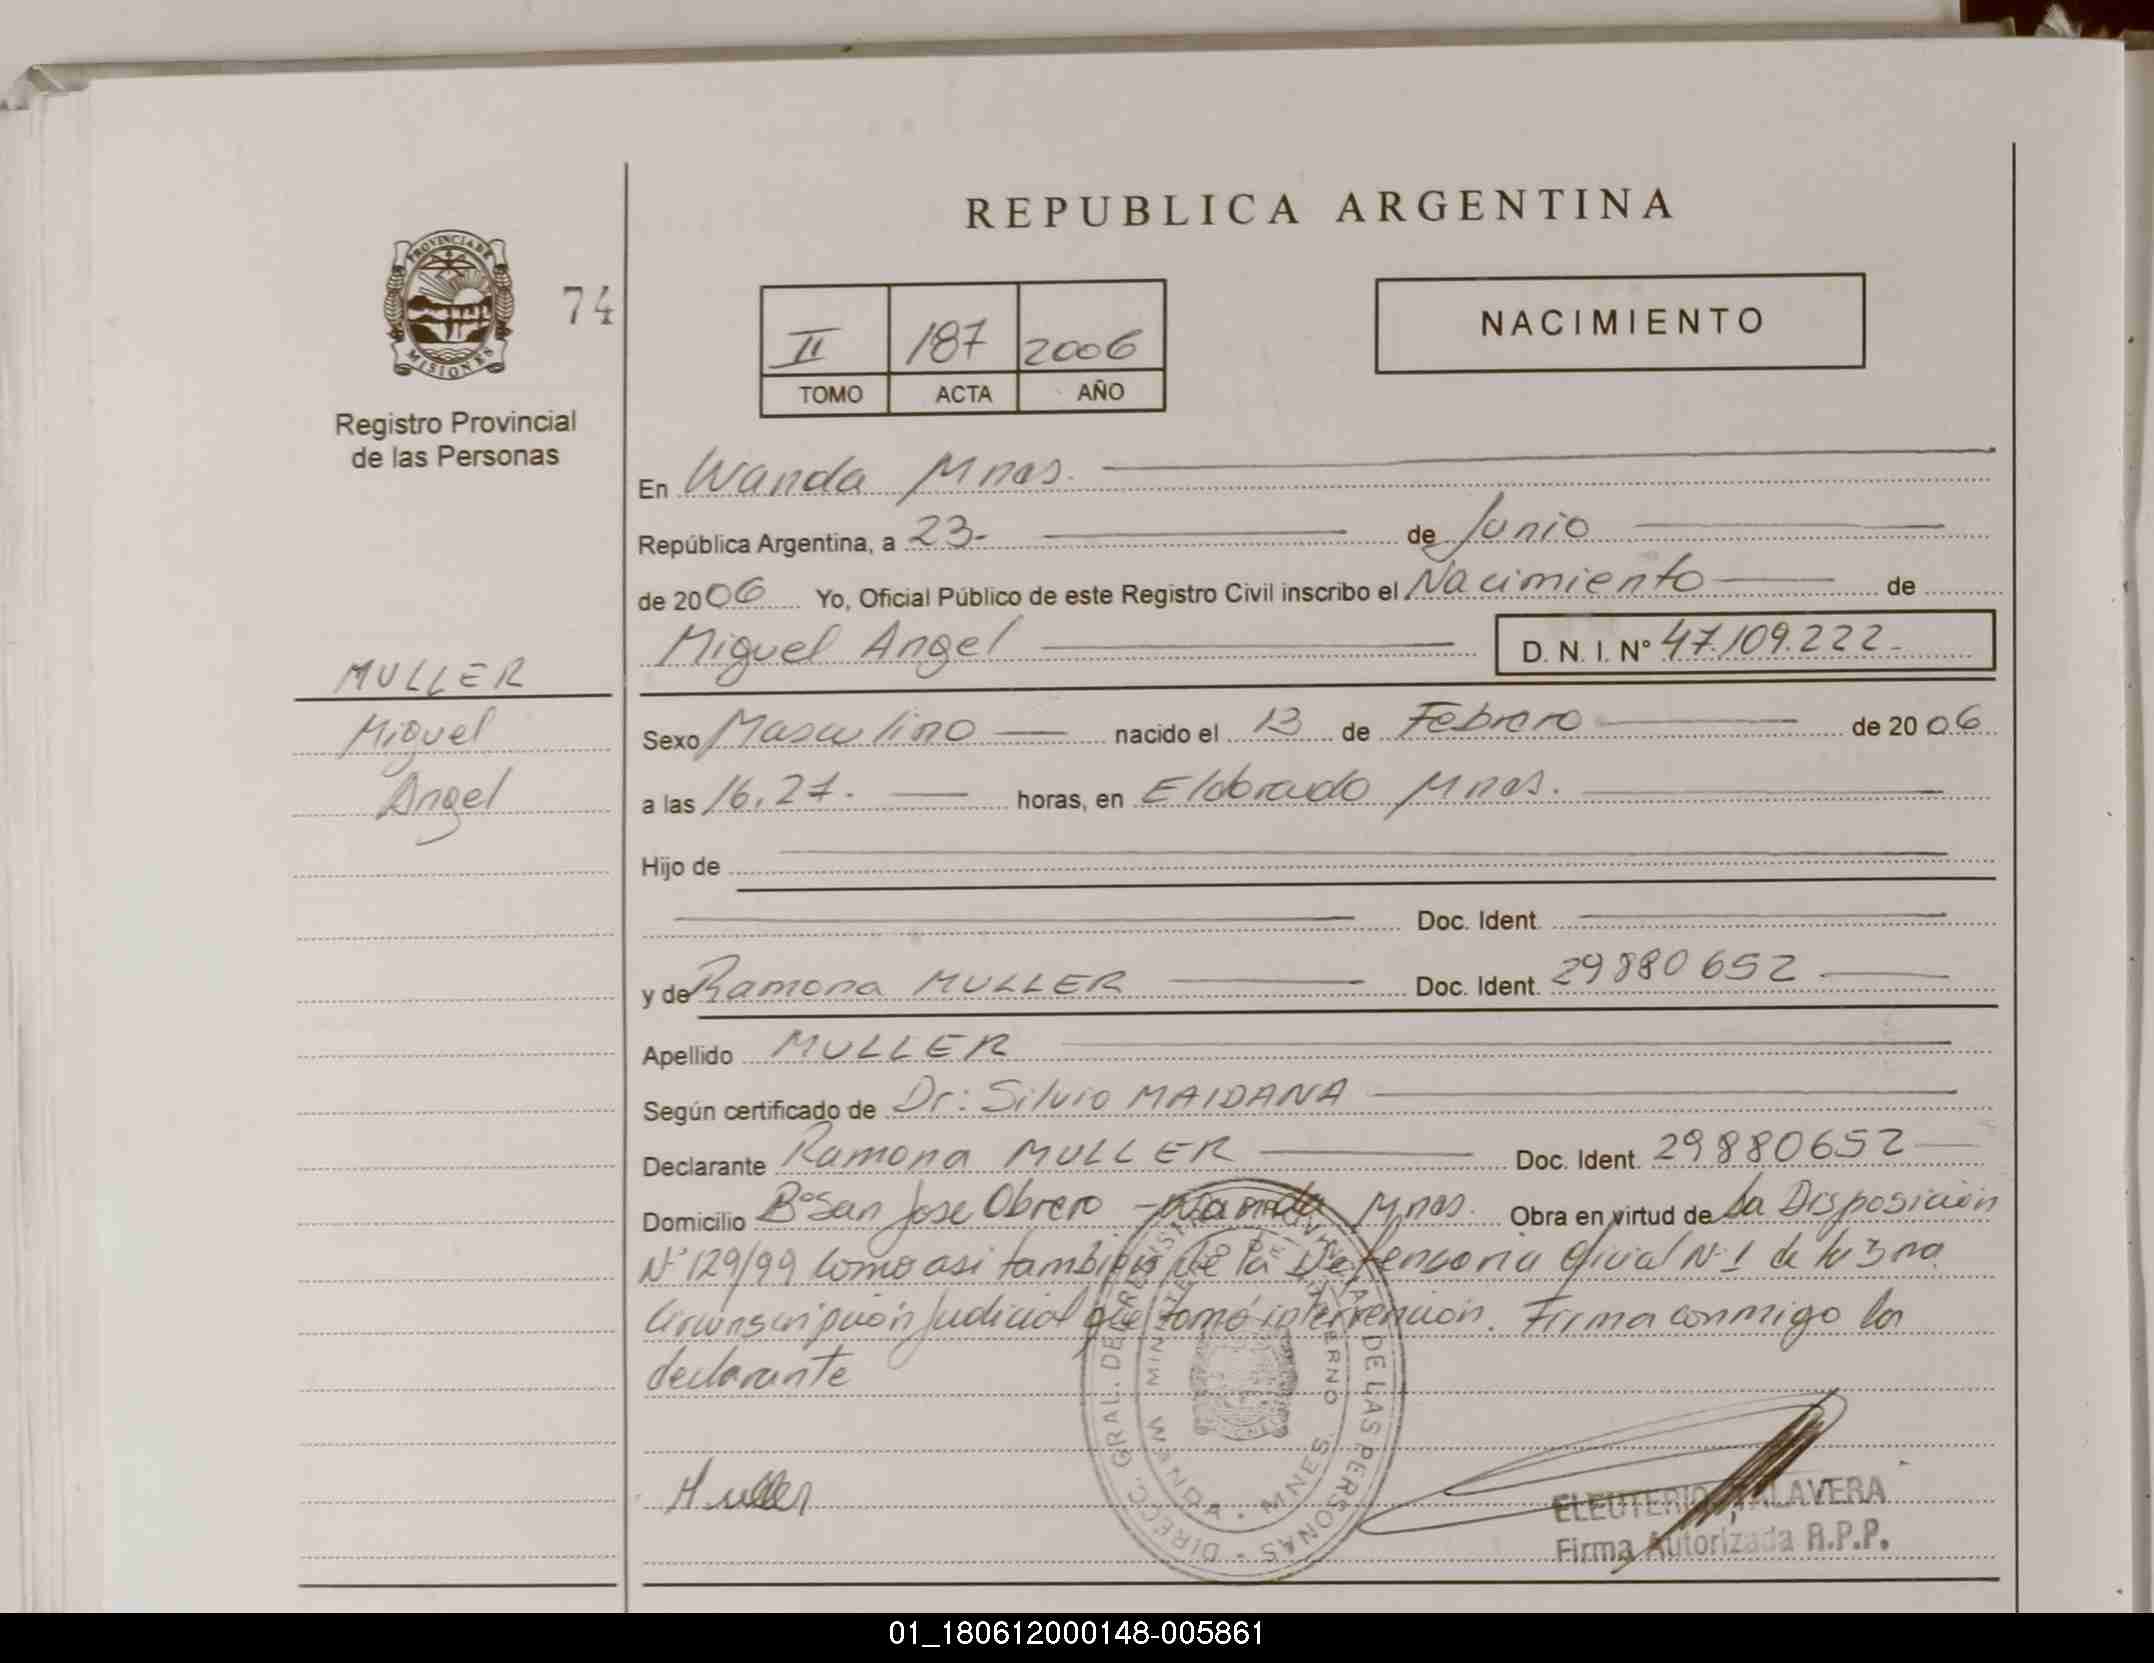 REPUBLICA ARGENTINA
PROVINCIA DE
MISIONES
74
II 187 2006
TOMO ACTA AÑO
NACIMIENTO
Registro Provincial
de las Personas
En Wanda Mnes.
República Argentina, a 23- de Junio
de 2006 Yo, Oficial Público de este Registro Civil inscribo el Nacimiento de
Miguel Angel D. N. I. Nº 47.109.222-
MULLER
Miguel
Angel
Sexo Masculino nacido el 13 de Febrero de 2006
a las 16,27. horas, en Eldorado Mnes.
Hijo de
Doc. Ident.
y de Ramona MULLER Doc. Ident. 29880652
Apellido MULLER
Según certificado de Dr: Silvio MAIDANA
Declarante Ramona MULLER Doc. Ident. 29880652
Domicilio Bº San Jose Obrero - Wanda Mnes. Obra en virtud de la Disposición
Nº 129/99 como asi tambien de la Defensoria Oficial Nº 1 de la 3ra
Circunscripción Judicial que tomó intervención. Firma conmigo la
declarante
Muller
DIREC. GRAL. DE DE LAS PERSONAS
WANDA - MNES
ELEUTERIO TALAVERA
Firma Autorizada R.P.P.
01_180612000148-005861